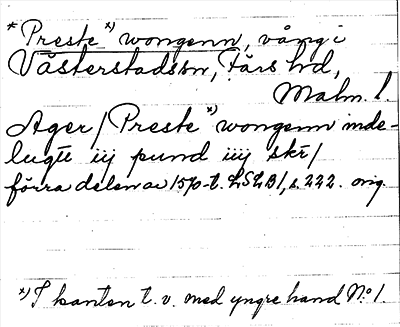 * Preste x) wongenn, vång i
Västerstads sn, Färs hd,
Malm. l.
Ager / Preste x) wongenn inde-
lugtt iij pund iiij skr /
förra delen av 1570-t. LSLB 1, s. 222. orig.
x) I kanten t. v. med yngre hand No 1.